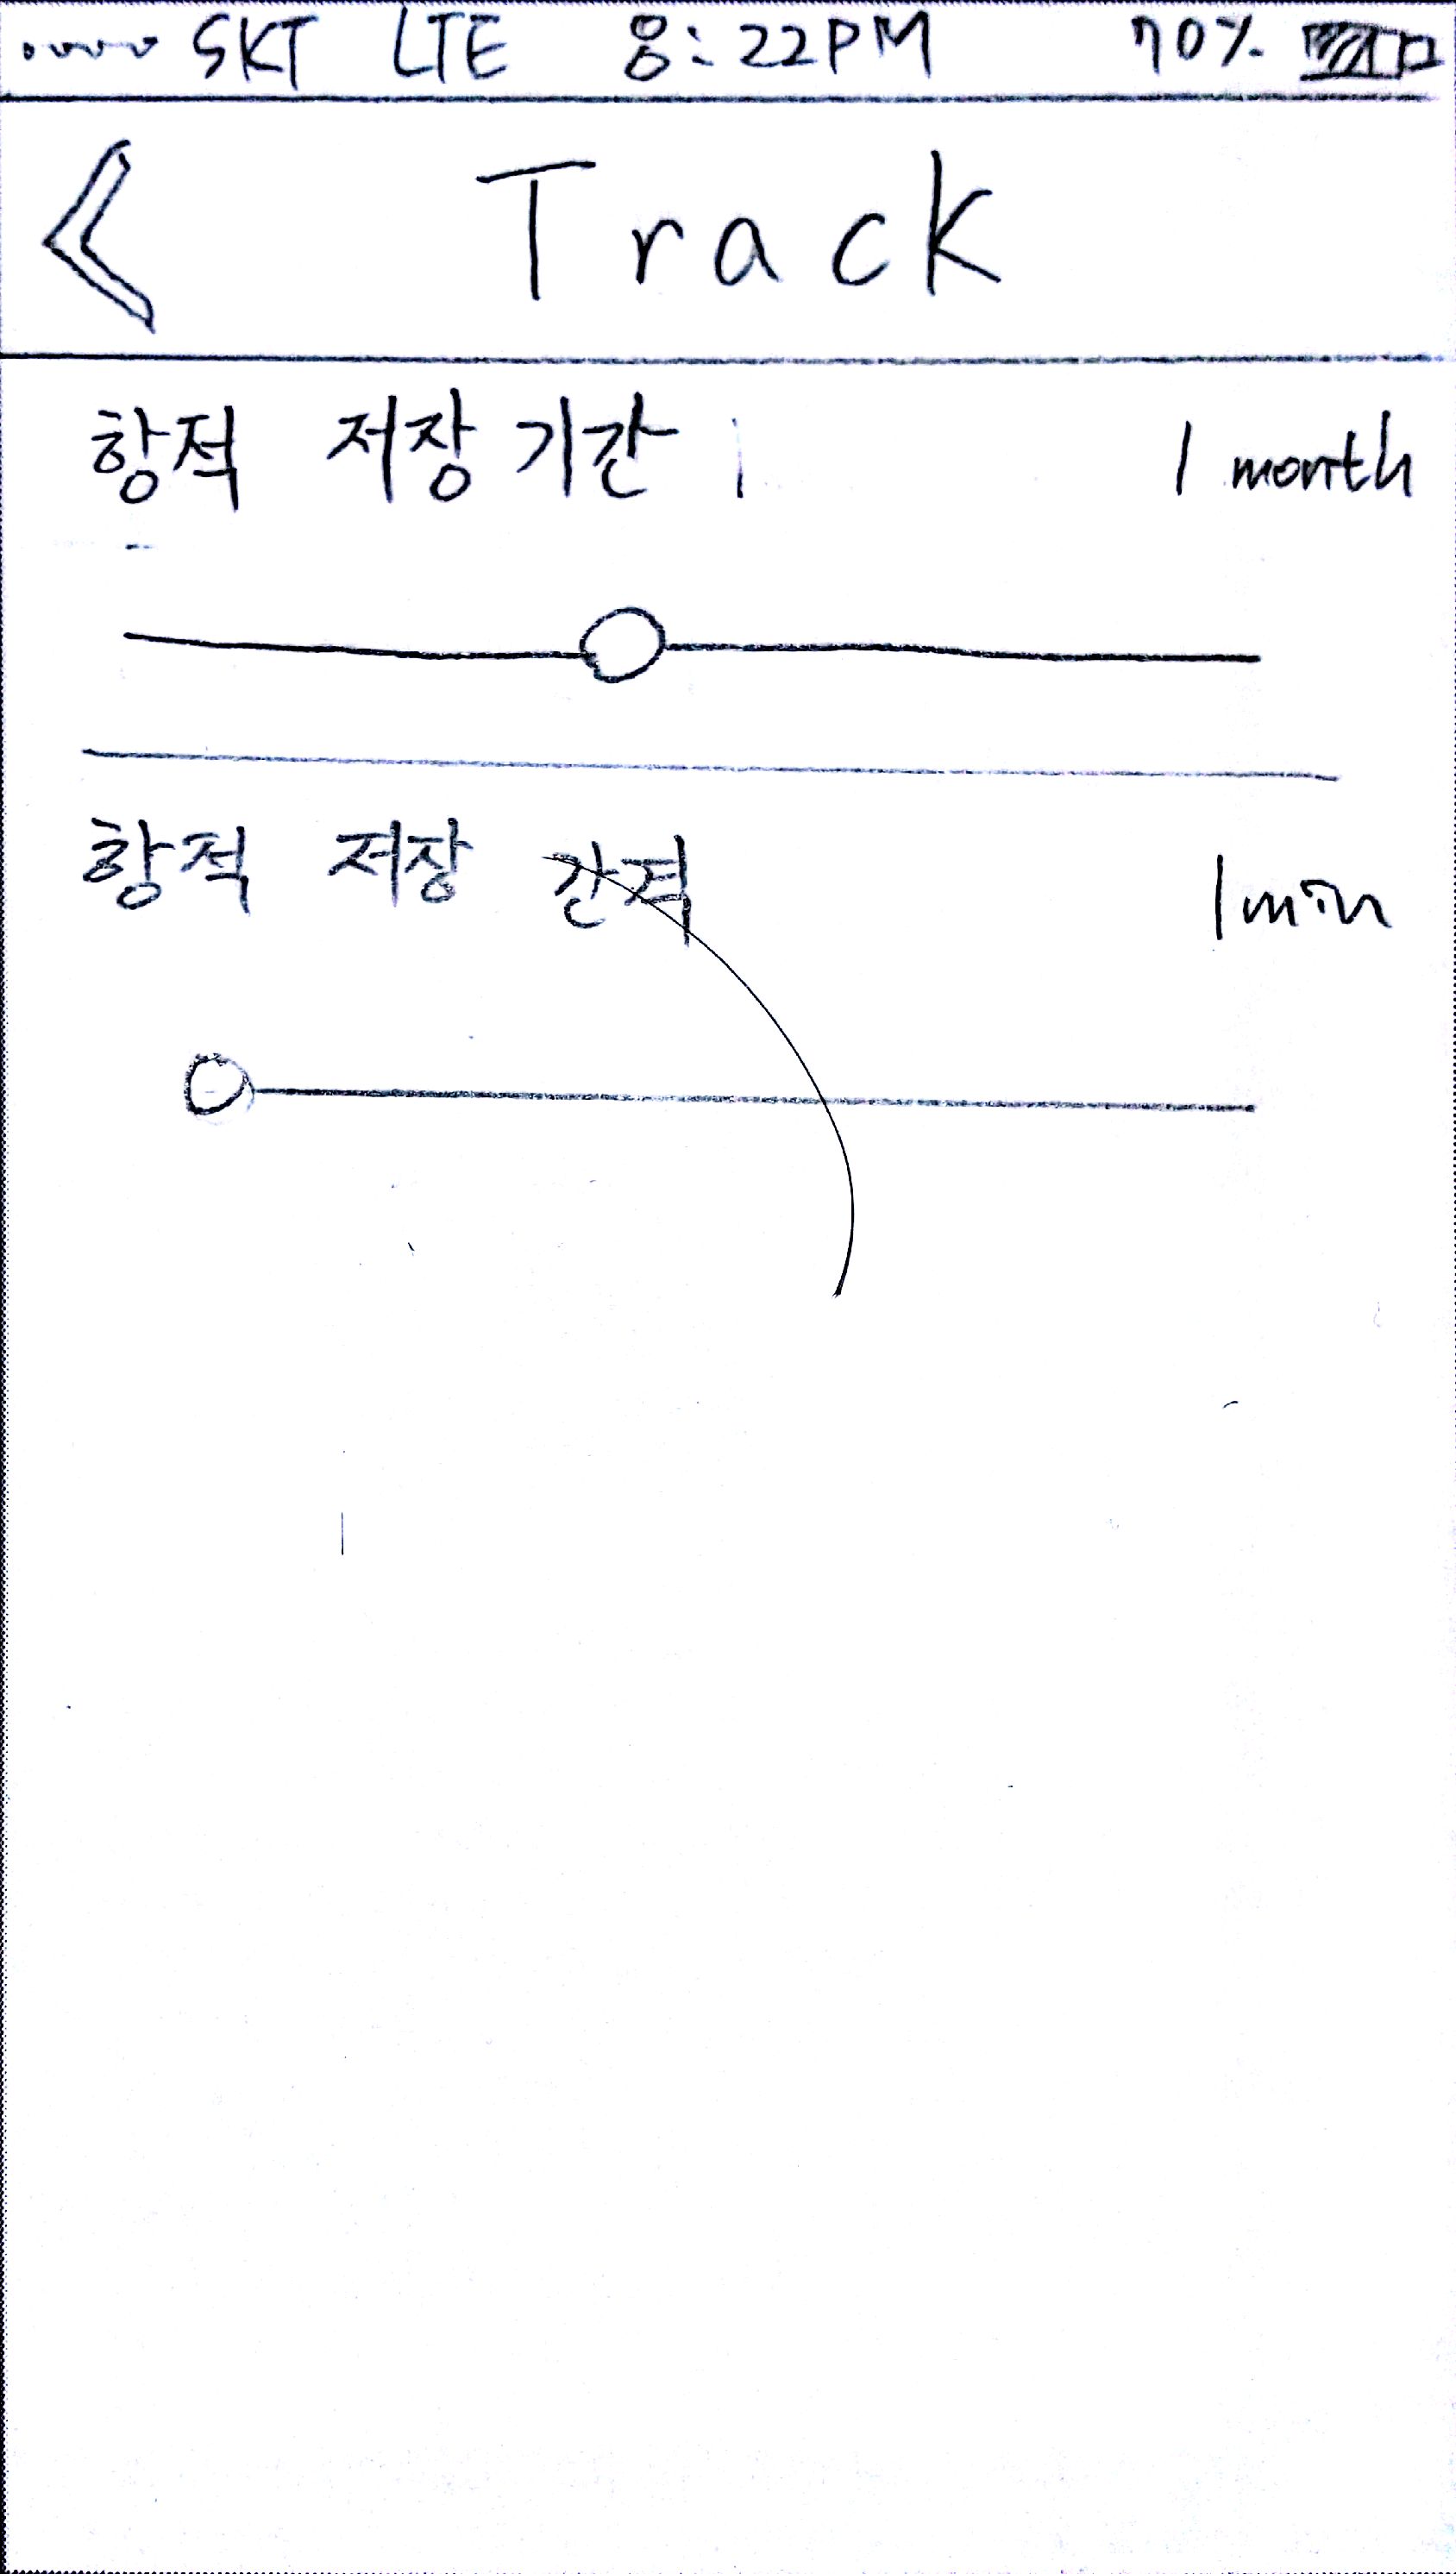 SKT LTE 8:22PM 70%
Track
항적 저장 기간 1 month
항적 저장 간격 1min